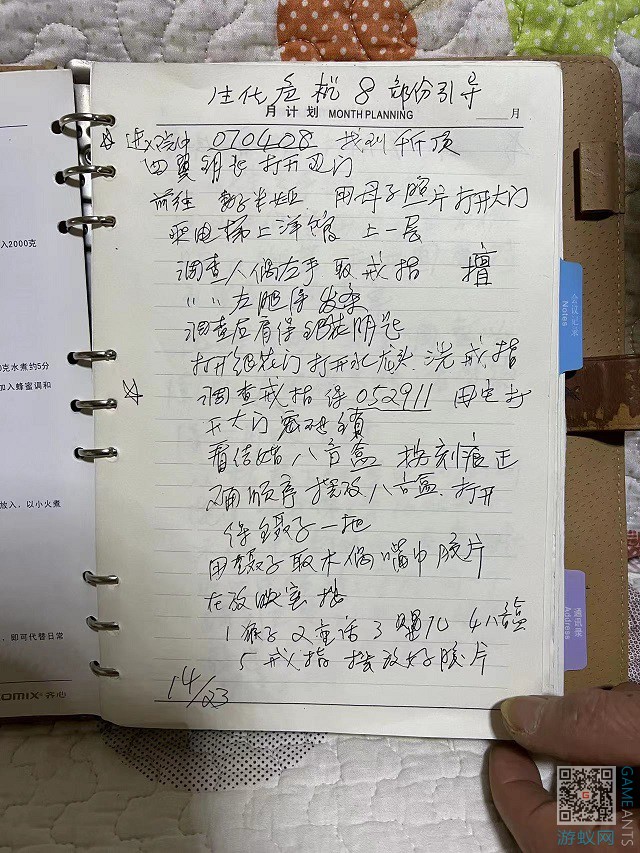 生化危机8部份引导
月计划 MONTH PLANNING ____月
☆ 进入 070408 找到 折页
四翼钥匙 打开 门
前往 用母子照片打开大门
乘电梯上洋馆 上一层
调查人偶左手 取戒指 擅
〃 〃 左腿得发条
调查后肩得银花钥匙
打开银花门 打开水龙头 洗戒指
☆ 调查戒指得 052911 用它打
开大门密码锁
看结婚八音盒 按刻痕正
确顺序摆放八音盒.打开
得镊子一把
用镊子取木偶嘴中胶片
在放映室按
1 猴子 2 童话 3 婴儿 4 八音盒
5 戒指 摆放好胶片
14/23
入2000克
克水煮约5分
加入蜂蜜调和
放入，以小火煮
，即可代替日常
OMIX®齐心
会议记录
Notes
Address
GAMEANTS
游蚁网